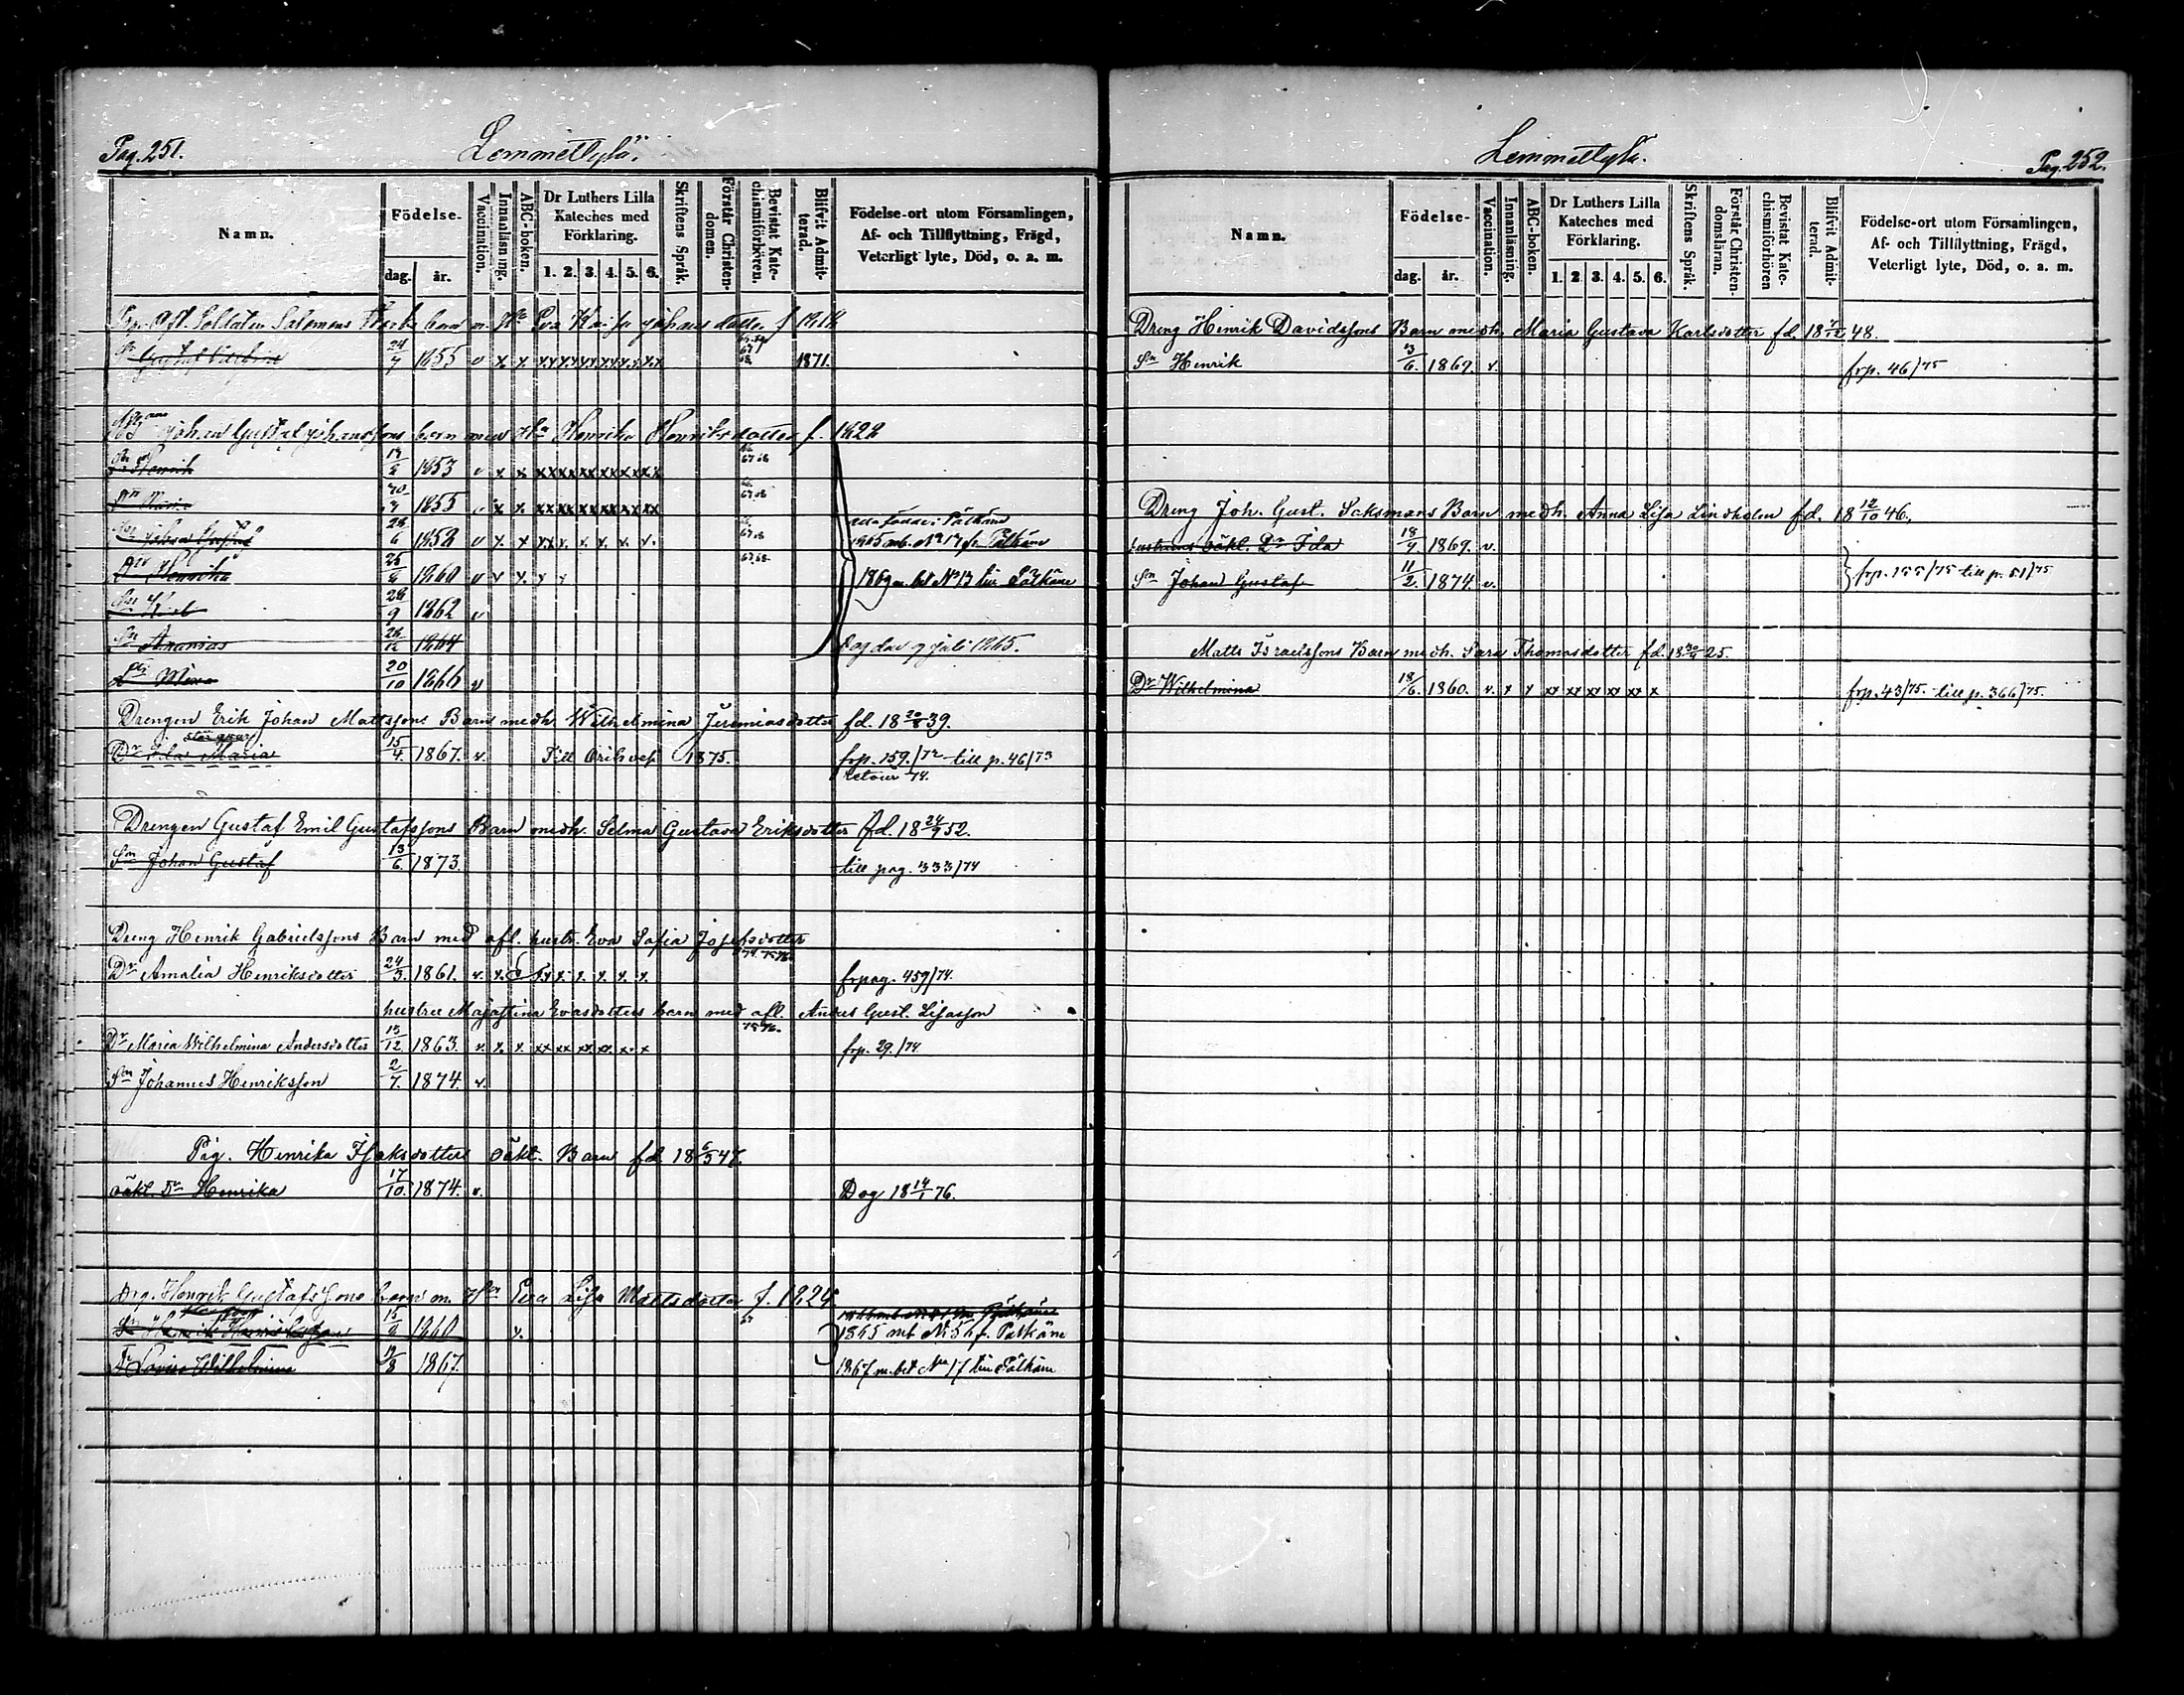 Pag. 251.
Lemmettylä.
Namn.
Födelse-
dag.
år.
Vaccination.
Innanläsning.
ABC-boken.
Dr Luthers Lilla Kateches med Förklaring.
1. 2. 3. 4. 5. 6.
Skriftens Språk.
Förstår Christen-domen.
Bevistat Kate-chismiförhören.
Blifvit Admit-terad.
Födelse-ort utom Församlingen,
Af- och Tillflyttning, Frägd,
Veterligt lyte, Död, o. a. m.
Soldaten Salomons barn m. Eva Kaisa Johansdotter f 1818
24/7 1855 v x x xx xx xx xx xx xx 1871.
Johan Gustaf Johanssons barn med Henrika Henriksdotter f. 1822
Henrik 1853 v x x xx xx xx xx xx xx
Maria 1855 v x x xx xx xx xx xx xx
Johan Gustaf 28/6 1858 v x x xx x. x. x. x. x.
1865 mb. No 17 fr. Pälkäne
Henrika 25/8 1860 v x x x
1869 m. bet No 13 till Pälkäne
28/9 1862 v
Ananias 1864
Dog den 9 juli 1865.
Mina 20/10 1866 v
Drengen Erik Johan Mattssons Barn medh. Wilhelmina Jeremiasdotter fd. 18 20/8 39.
står qvar
Dr Ida Maria 15/4 1867. v. Till Orihvesi 1875. frp. 159./72 till p. 46/73
retour 74.
Drengen Gustaf Emil Gustafssons Barn medh. Selma Gustava Eriksdotter fd. 18 24/9 52.
Sn Johan Gustaf 13/6 1873. till pag. 333/74
Dreng Henrik Gabrielssons Barn med afl. hustr. Eva Sofia Josefsdotter
Dr Amalia Henriksdotter 24/3 1861. v. x. xx x. x. x. x. x. frpag. 459/74.
hustru Majastina Evasdotters barn med afl. Anders Gust. Lisasson
Dr Maria Wilhelmina Andersdotter 15/12 1863. v. x. x. xx xx xx xx x x frp. 29./74.
Sn Johannes Henriksson 2/7 1874. v.
Pig. Henrika Isaksdotters oäkt. Barn fd. 18 6/3 47.
oäkt. Dr Henrika 17/10 1874. v. Dog 18 14/1 76.
Drg. Henrik Gustafssons barn m. Eva Lisa Mattsdotter f. 1824
Henrik Henriksson 1860 x. 1865 mb No 56 fr. Pälkäne
Dr Lovisa Wilhelmina 1867. 1867 m. bet No 17 till Pälkäne
Lemmettylä.
Pag. 252.
Namn.
Födelse-
dag.
år.
Vaccination.
Innanläsning.
ABC-boken.
Dr Luthers Lilla Kateches med Förklaring.
1. 2. 3. 4. 5. 6.
Skriftens Språk.
Förstår Christen-domsläran.
Bevistat Kate-chismiförhören
Blifvit Admit-terad.
Födelse-ort utom Församlingen,
Af- och Tillflyttning, Frägd,
Veterligt lyte, Död, o. a. m.
Dreng Henrik Davidssons Barn medh. Maria Gustava Karlsdotter fd. 48.
Sn Henrik 3/6. 1869. v. frp. 46/75
Dreng Joh. Gust. Saksmans Barn medh. Anna Lisa Lindholm fd. 18 12/10 46.
hustruns oäkt. Dr Ida 18/9. 1869. v.
Sn Johan Gustaf 11/2. 1874. v. frp. 155/75 till p. 51/75
Matts Israelssons Barn medh. Sara Thomasdotter fd. 25.
Dr Wilhelmina 18/6. 1860. v. x x xx xx xx xx xx x frp. 43/75. till p. 366/75.